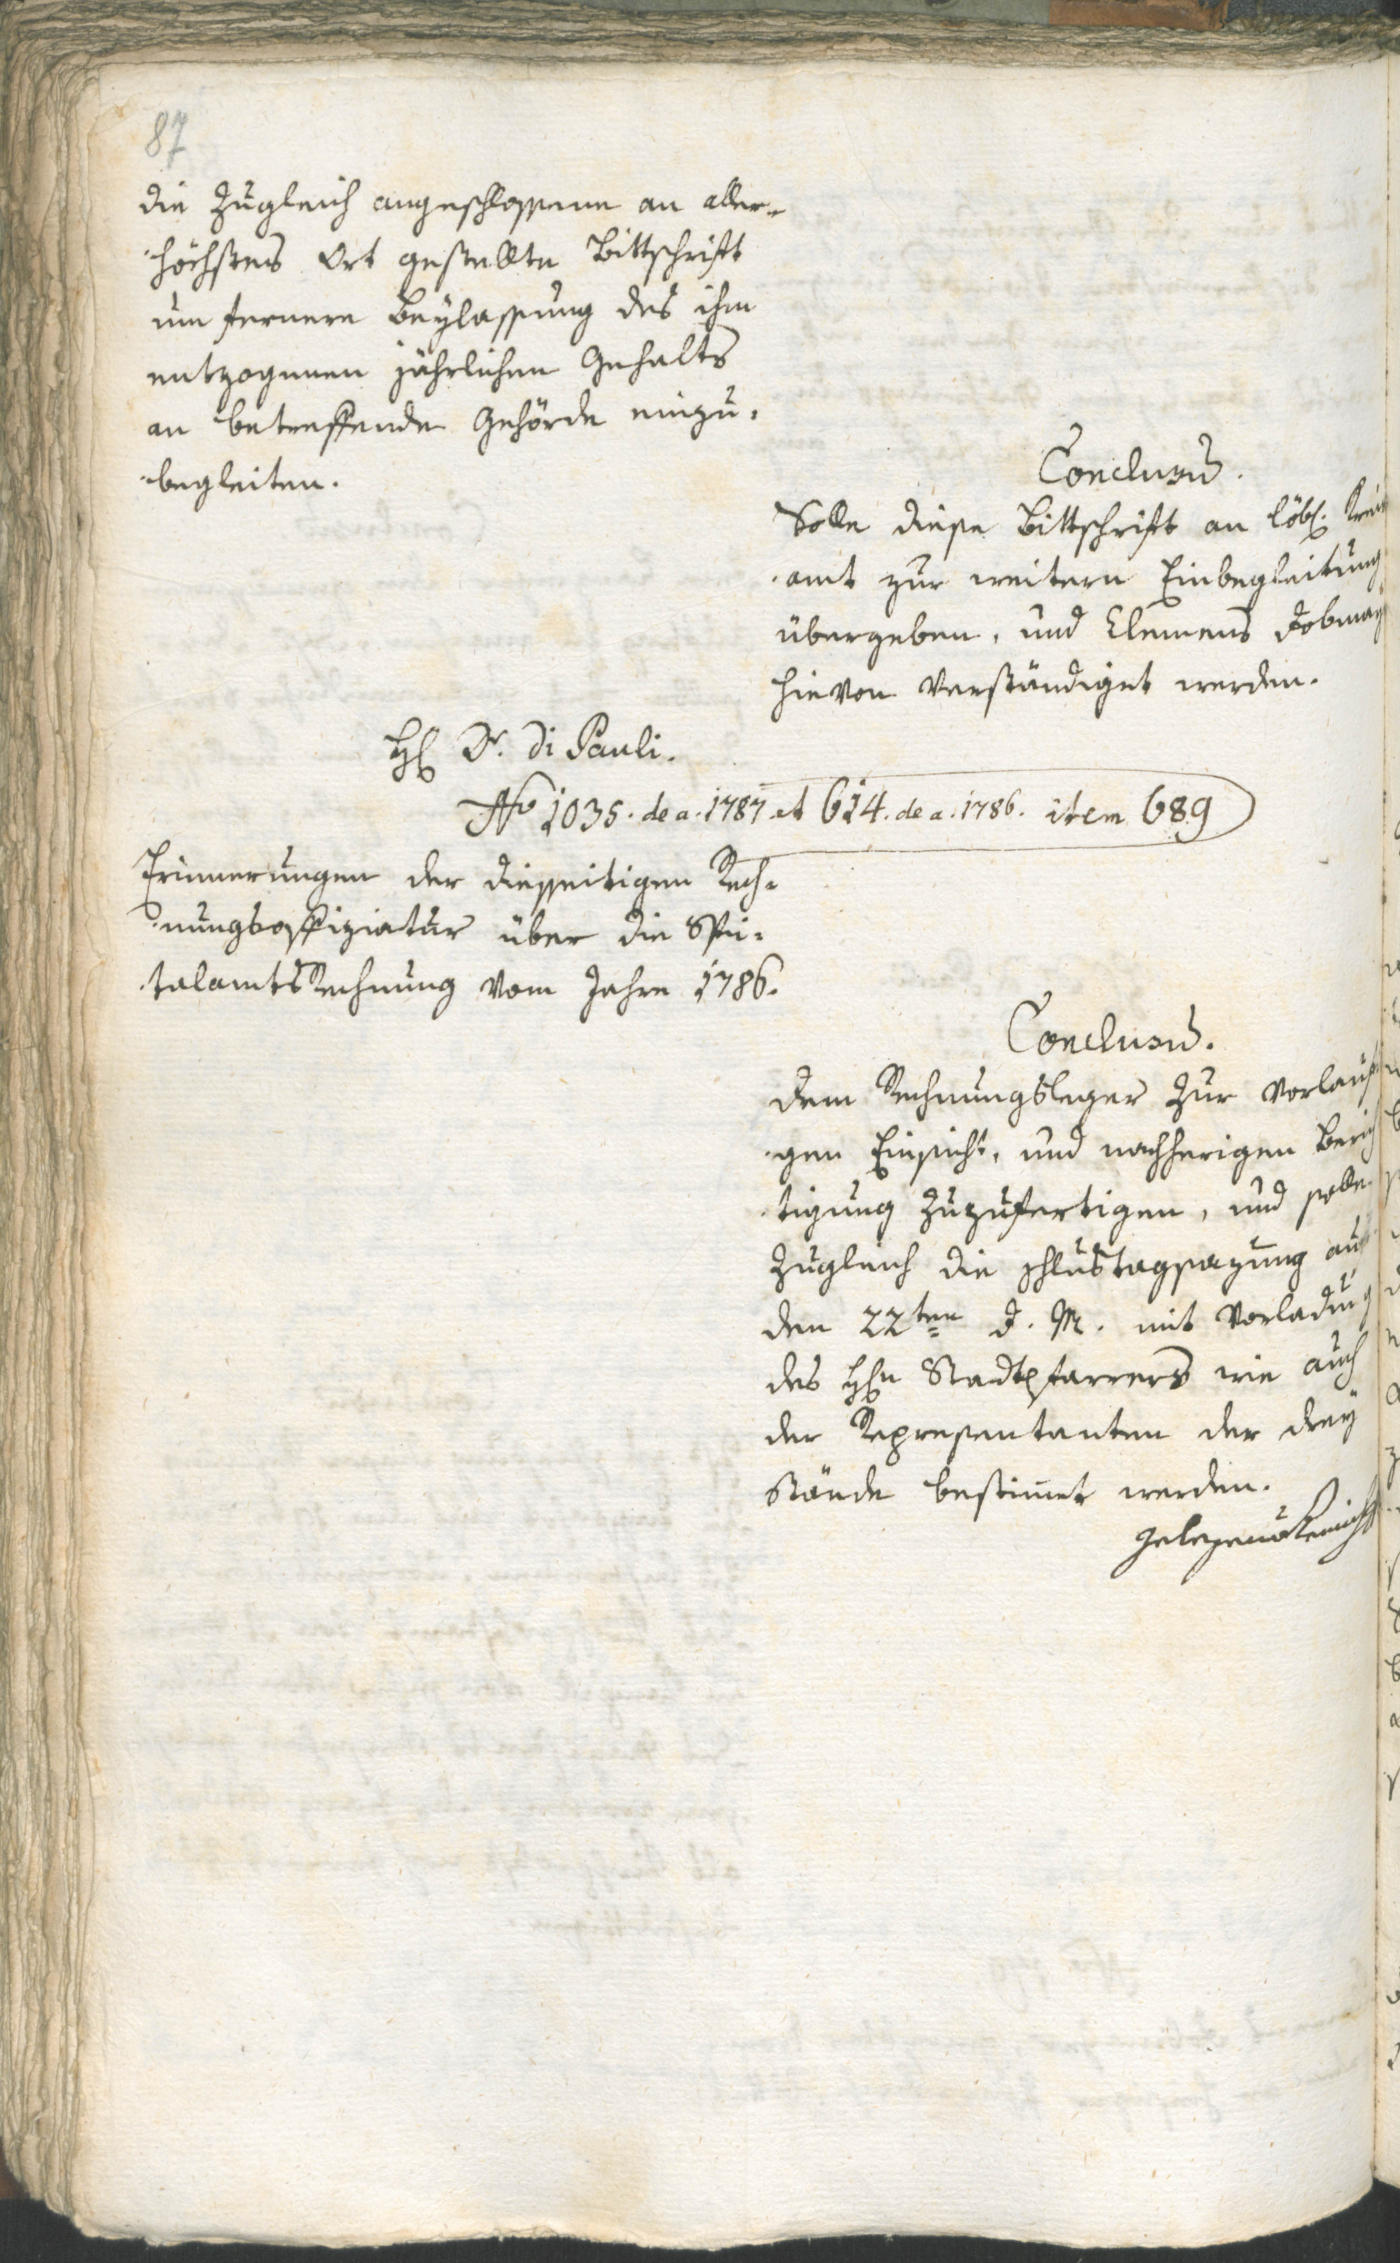 87
die zugleich angeschlossene an aller-
höchstes Ort gestellte Bittschrift
um fernere Beylassung des ihm
entzogenen jährlichen Gehalts
an betreffende Gehörde einzu-
begleiten.
Conclusum.
Solle diese Bittschrift an löbl. Kreis
amt zur weitern Einbegleitung
übergeben, und Clemens
hievon verständiget werden.
H. Dr. Di Pauli.
No 1035. de a. 1787 et 614. de a. 1786. item 689
Erinnerungen der diesseitigen Rech-
nungsoffiziatur über die Spi-
talamtsRechnung vom Jahre 1786.
Conclusum.
Dem Rechnungsleger zur vorläufi
gen Einsicht, und nachherigen Berich
tigung zuzufertigen, und solle
zugleich die schlustagsazung auf
den 22ten d. M. mit Vorladung
des Hn Stadtpfarrers wie auch
der Representanten der drey
Stände bestimet werden.